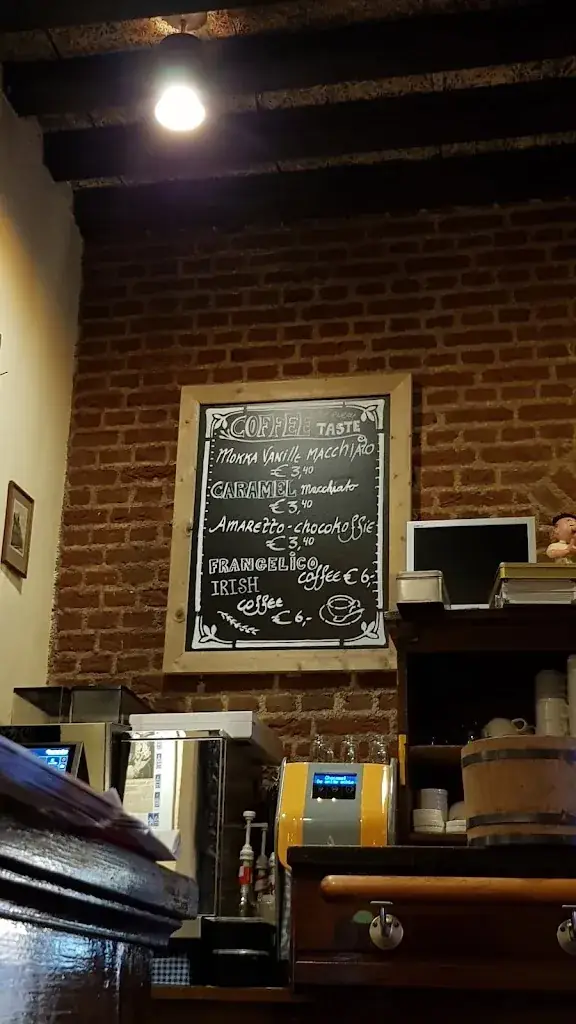 COFFEE
TASTE
MOKKA VANILLE MACCHIATO
€ 3,40
CARAMEL macchiato
€ 3,40
AMARETTO-chocokoffie
€ 3,40
FRANGELICO
coffee € 6,-
IRISH
coffee
€ 6,-